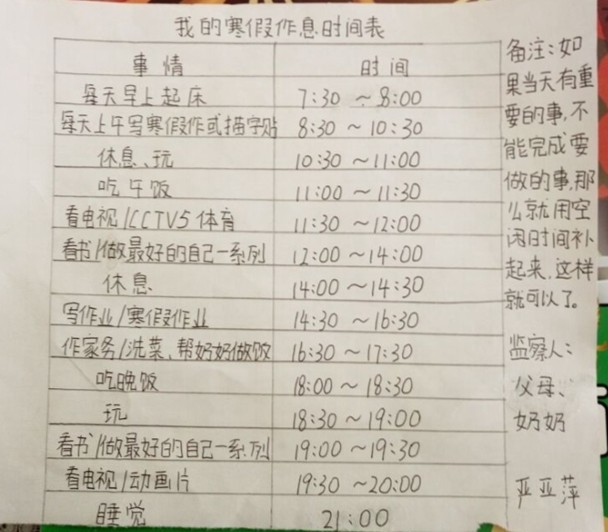 我的寒假作息时间表
事情 时间
每天早上起床 7:30 ~ 8:00
每天上午写寒假作或描字贴 8:30 ~ 10:30
休息、玩 10:30 ~ 11:00
吃午饭 11:00 ~ 11:30
看电视/CCTV5体育 11:30 ~ 12:00
看书/做最好的自己一系列 12:00 ~ 14:00
休息 14:00 ~ 14:30
写作业/寒假作业 14:30 ~ 16:30
作家务/洗菜、帮奶奶做饭 16:30 ~ 17:30
吃晚饭 18:00 ~ 18:30
玩 18:30 ~ 19:00
看书/做最好的自己一系列 19:00 ~ 19:30
看电视/动画片 19:30 ~ 20:00
睡觉 21:00
备注:如
果当天有重
要的事,不
能完成要
做的事,那
么就用空
闲时间补
起来,这样
就可以了。
监察人:
父母、
奶奶
严亚萍